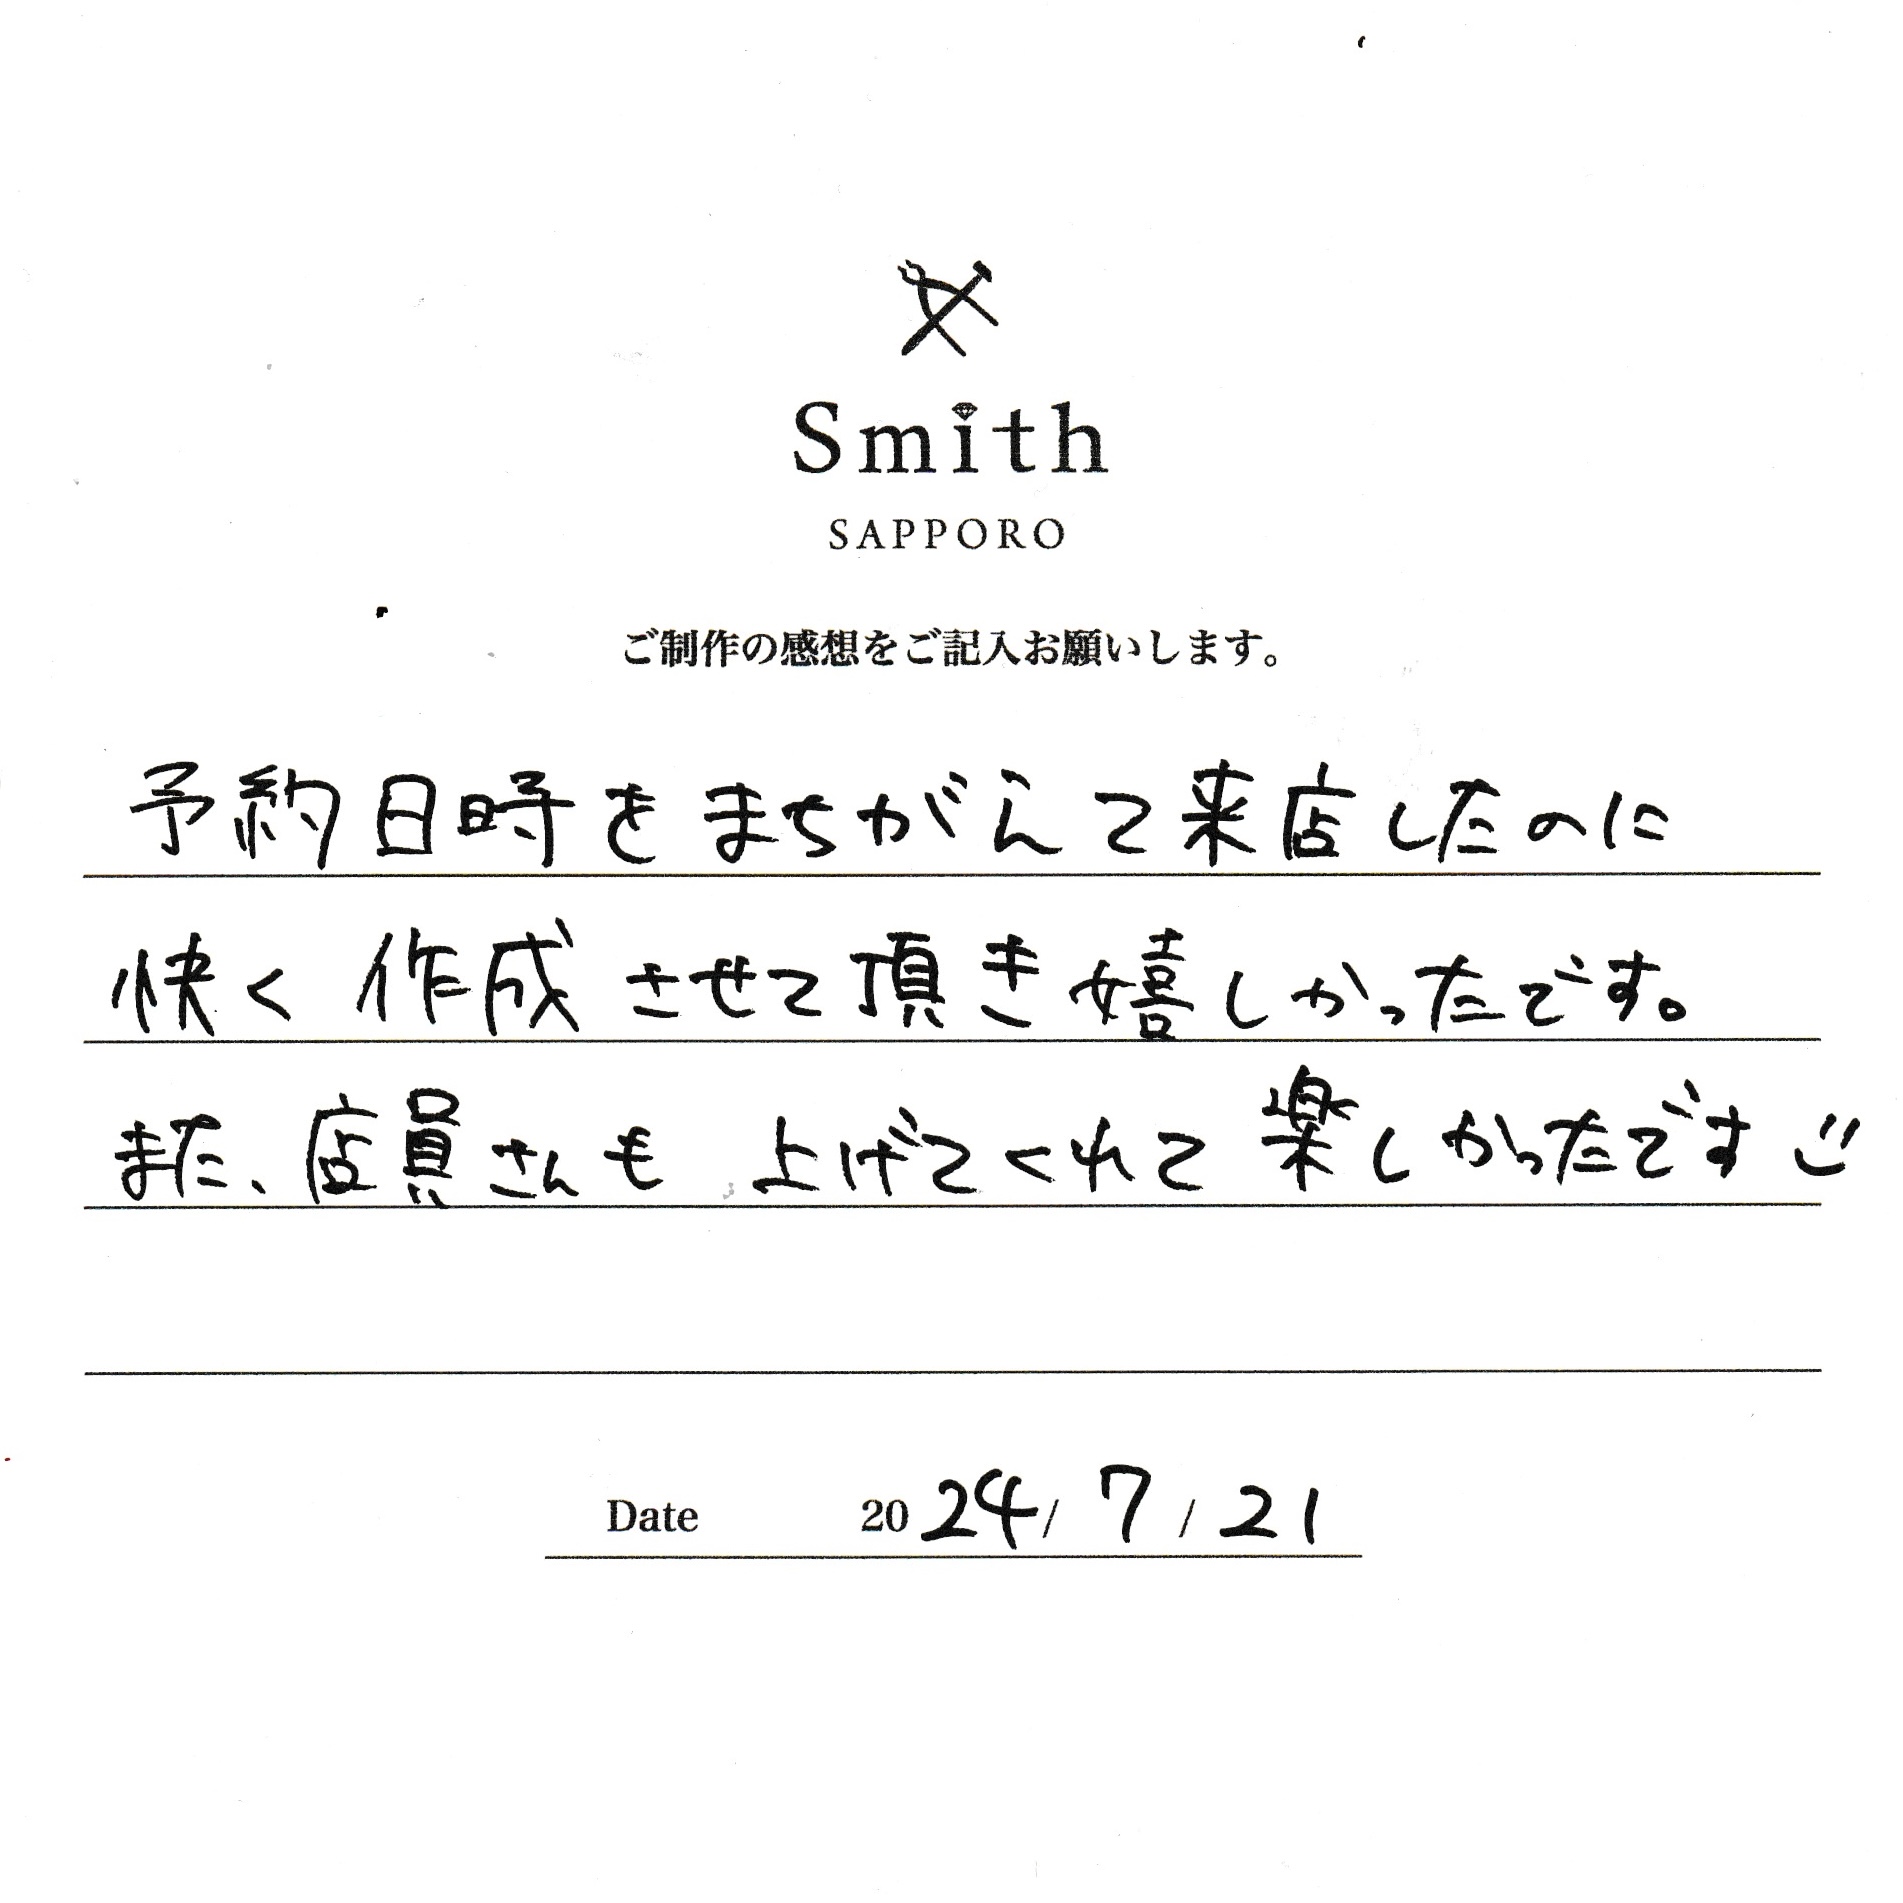 Smith
SAPPORO
ご制作の感想をご記入お願いします。
予約日時をまちがえて来店したのに
快く作成させて頂き嬉しかったです。
また、店員さんも 上げてくれて楽しかったです
Date 2024/7/21